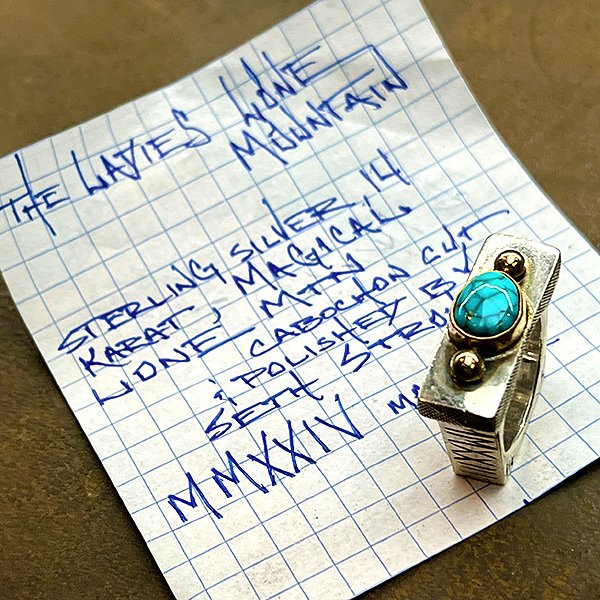 THE LADIES LONE
MOUNTAIN
STERLING SILVER 14
KARAT, MAGICAL
LONE MTN
CABOCHON CUT
& POLISHED BY
SETH
MMXXIV